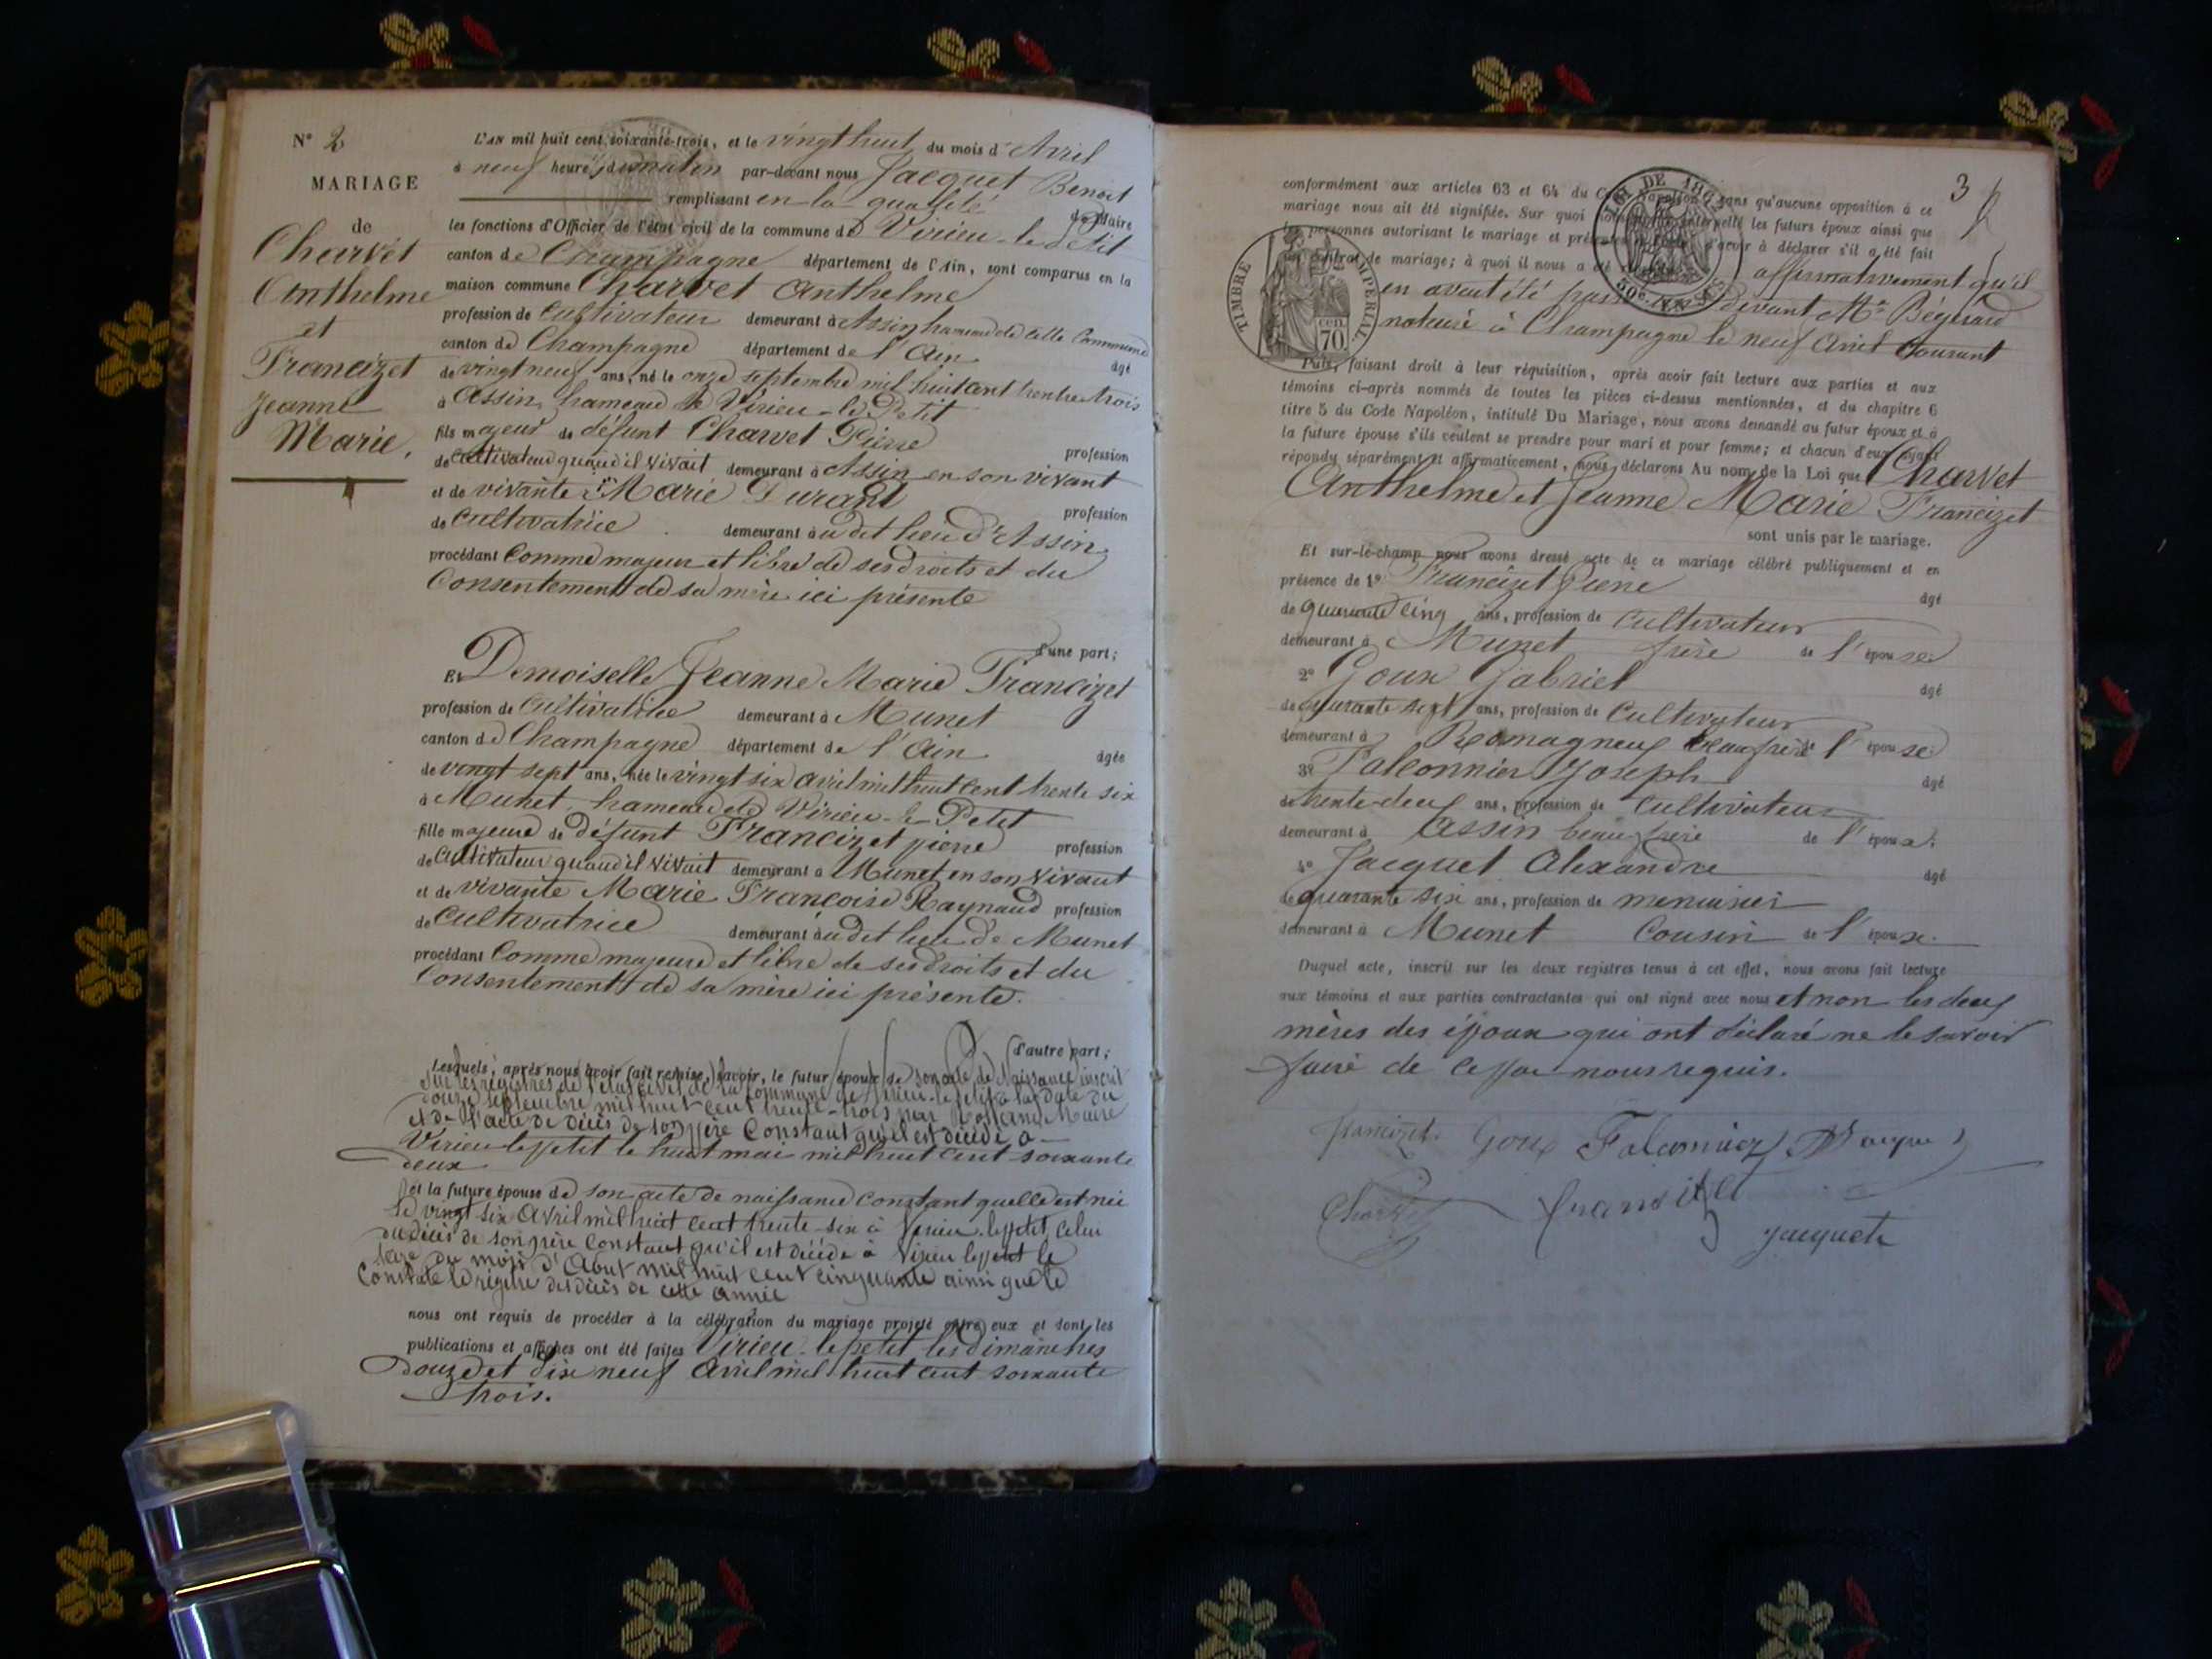 N° 2
MARIAGE
de
Charvet
Anthelme
et
Francizet
Jeanne
Marie.
L'AN mil huit cent soixante-trois, et le vingt huit du mois d' Avril
à neuf heures du matin par-devant nous Jacquet Benoit
remplissant en la qualité de Maire
les fonctions d'Officier de l'état civil de la commune de Virieu-le-Petit
canton de Champagne département de l'Ain, sont comparus en la
maison commune Charvet Anthelme
profession de Cultivateur demeurant à Assin hameau de cette Commune
canton de Champagne département de l'Ain âgé
de vingt neuf ans, né le onze septembre mil huit cent trente trois
à Assin hameau de Virieu-le-Petit
fils majeur de défunt Charvet Pierre profession
de Cultivateur quand il vivait demeurant à Assin en son vivant
et de vivante Marie Durand profession
de Cultivatrice demeurant au dit lieu d'Assin
procédant Comme majeur et libre de ses droits et du
Consentement de sa mère ici présente
d'une part;
Et Demoiselle Jeanne Marie Francizet
profession de Cultivatrice demeurant à Munet
canton de Champagne département de l'Ain âgée
de vingt sept ans, née le vingt six avril mil huit cent trente six
à Munet hameau de Virieu-le-Petit
fille majeure de défunt Francizet pierre profession
de Cultivateur quand il vivait demeurant à Munet en son vivant
et de vivante Marie Françoise Raynaud profession
de Cultivatrice demeurant au dit lieu de Munet
procédant Comme majeure et libre de ses droits et du
Consentement de sa mère ici présente.
d'autre part;
Lesquels, après nous avoir fait remise, savoir, le futur époux de son acte de Naissance inscrit
sur les registres de l'état civil de la Commune de Virieu-le-petit à la date du
douze septembre mil huit cent trente-trois par Maire
et de l'acte de décès de son père Constant qu'il est décédé à
Virieu le petit le huit mai mil huit cent soixante
deux
et la future épouse de son acte de naissance constant quelle est née
le vingt six Avril mil huit cent trente-six à Virieu-le petit, celui
du décès de son père Constant qu'il est décédé à Virieu le petit le
du mois d'Aout mil huit cent cinquante ainsi que le
Constate le registre des décès de cette année
nous ont requis de procéder à la célébration du mariage projeté entre eux et dont les
publications et affiches ont été faites Virieu-le petit les dimanches
douze et dix neuf Avril mil huit cent soixante
trois.
3
conformément aux articles 63 et 64 du Code Napoléon, sans qu'aucune opposition à ce
mariage nous ait été signifiée. Sur quoi nous avons interpellé les futurs époux ainsi que
les personnes autorisant le mariage et présentes d'avoir à déclarer s'il a été fait
un contrat de mariage; à quoi il nous a été répondu affirmativement qu'il
en avait été passé devant Me Béguard
notaire à Champagne le neuf Avril Courant
TIMBRE IMPERIAL
70 cen.
50e EN SUS
Puis, faisant droit à leur réquisition, après avoir fait lecture aux parties et aux
témoins ci-après nommés de toutes les pièces ci-dessus mentionnées, et du chapitre 6
titre 5 du Code Napoléon, intitulé Du Mariage, nous avons demandé au futur époux et à
la future épouse s'ils veulent se prendre pour mari et pour femme; et chacun d'eux ayant
répondu séparément et affirmativement, nous déclarons Au nom de la Loi que Charvet
Anthelme et Jeanne Marie Francizet
sont unis par le mariage.
Et sur-le-champ nous avons dressé acte de ce mariage célébré publiquement et en
présence de 1° Francizet Pierre âgé
de quarante cinq ans, profession de Cultivateur
demeurant à Munet frère de l'épouse
2° Goux Gabriel âgé
de quarante sept ans, profession de Cultivateur
demeurant à Romagneux beaufrère de l'épouse
3° Falconnier Joseph âgé
de trente-deux ans, profession de Cultivateur
demeurant à Assin beaufrère de l'époux.
4° Jacquet Alexandre âgé
de quarante six ans, profession de menuisier
demeurant à Munet Cousin de l'épouse.
Duquel acte, inscrit sur les deux registres tenus à cet effet, nous avons fait lecture
aux témoins et aux parties contractantes qui ont signé avec nous et non les deux
mères des époux qui ont déclaré ne le savoir
faire de ce par nous requis.
francizet Goux Falconnier
Charvet francizet
Jacquet